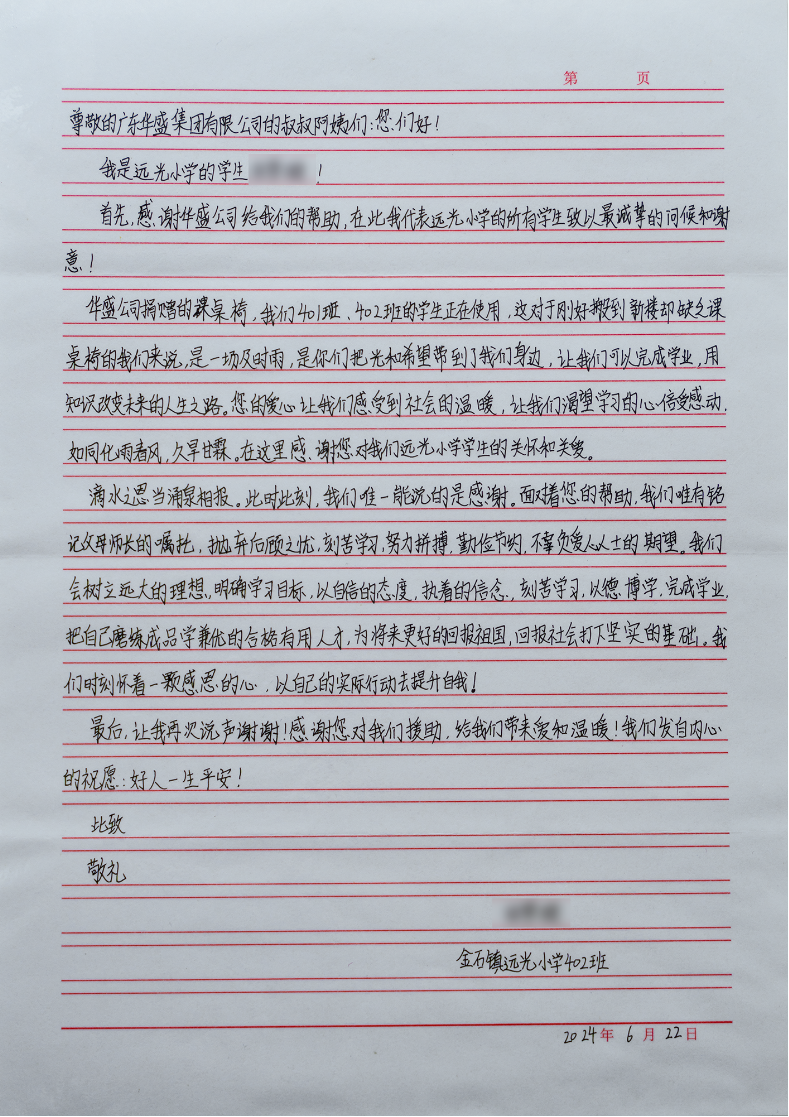 第 页
尊敬的广东华盛集团有限公司的叔叔阿姨们:您们好!
我是远光小学的学生 !
首先,感谢华盛公司给我们的帮助,在此我代表远光小学的所有学生致以最诚挚的问候和谢
意!
华盛公司捐赠的课桌椅,我们401班、402班的学生正在使用,这对于刚好搬到新楼却缺乏课
桌椅的我们来说,是一场及时雨,是你们把光和希望带到了我们身边,让我们可以完成学业,用
知识改变未来的人生之路。您的爱心让我们感受到社会的温暖,让我们渴望学习的心倍受感动,
如同化雨春风,久旱甘霖。在这里感谢您对我们远光小学学生的关怀和关爱。
滴水之恩当涌泉相报。此时此刻,我们唯一能说的是感谢。面对着您的帮助,我们唯有铭
记父母师长的嘱托,抛弃后顾之忧,刻苦学习,努力拼搏,勤俭节约,不辜负爱人人士的期望。我们
会树立远大的理想,明确学习目标,以自信的态度,执着的信念,刻苦学习,以德博学,完成学业,
把自己磨练成品学兼优的合格有用人才,为将来更好的回报祖国,回报社会打下坚实的基础。我
们时刻怀着一颗感恩的心,以自己的实际行动去提升自我!
最后,让我再次说声谢谢!感谢您对我们援助,给我们带来爱和温暖!我们发自内心
的祝愿:好人一生平安!
此致
敬礼
金石镇远光小学402班
2024年6月22日